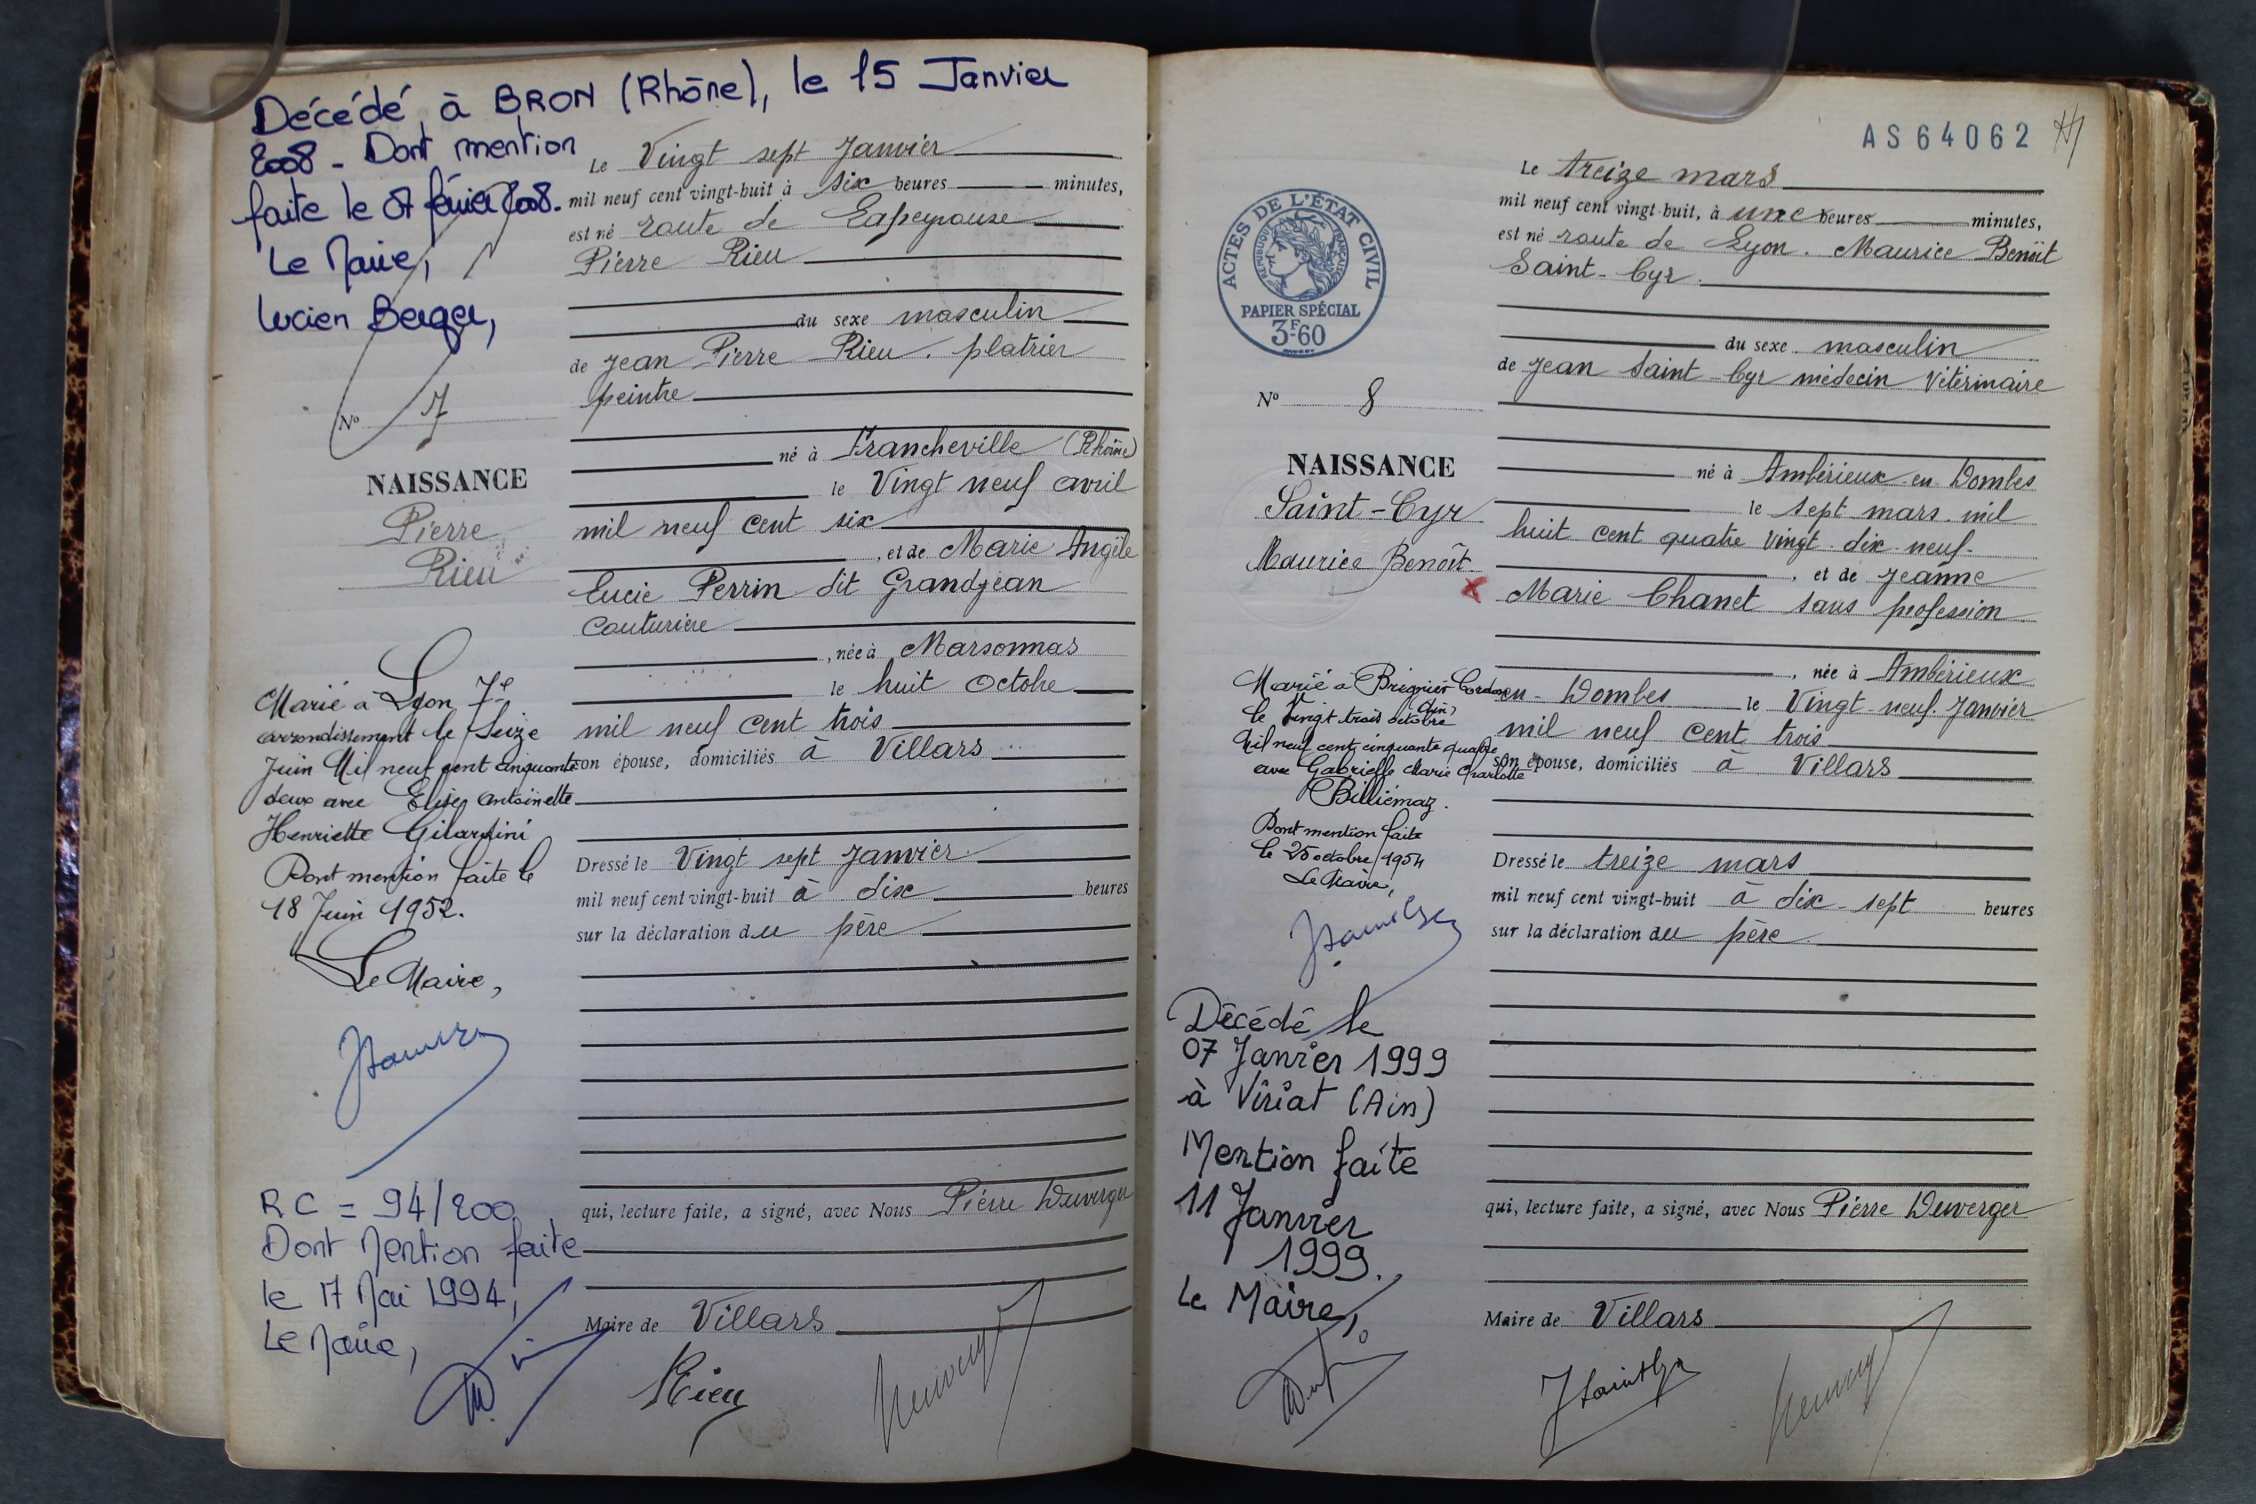 Décédé à BRON (Rhône), le 15 Janvier
2008 - Dont mention
faite le 07 février 2008.
Le Maire,
Lucien Berger,
No 7
NAISSANCE
Pierre
Rieu
Marié à Lyon 7e
arrondissement le Seize
Juin Mil neuf cent cinquante
deux avec Elise Antoinette
Henriette Gilardini
Dont mention faite le
18 Juin 1952.
Le Maire,
RC = 94/200
Dont Mention faite
le 17 Mai 1994,
Le Maire,
Le Vingt sept Janvier
mil neuf cent vingt-huit à six heures minutes,
est né route de Lapeyrouse
Pierre Rieu
du sexe masculin
de Jean Pierre Rieu. platrier
peintre
né à Francheville (Rhône)
le Vingt neuf avril
mil neuf cent six
, et de Marie Angèle
Lucie Perrin dit Grandjean
Couturière
, née à Marsonnas
le huit Octobre
mil neuf cent trois
son épouse, domiciliés à Villars
Dressé le Vingt sept Janvier
mil neuf cent vingt-huit à dix heures
sur la déclaration du père
qui, lecture faite, a signé, avec Nous Pierre Duverger
Maire de Villars
Rieu
AS64062
ACTES DE L'ÉTAT CIVIL
RÉPUBLIQUE FRANÇAISE
PAPIER SPÉCIAL
3F60
No 8
NAISSANCE
Saint-Cyr
Maurice Benoît
x
Marié à Brégnier Cordon
(Ain)
le Vingt trois octobre
Mil neuf cent cinquante quatre
avec Gabrielle Marie Charlotte
Billiémaz.
Dont mention faite
le 25 octobre 1954
Le Maire,
Décédé le
07 Janvier 1999
à Viriat (Ain)
Mention faite
11 Janvier
1999.
Le Maire,
Le treize mars
mil neuf cent vingt-huit, à une heures minutes,
est né route de Lyon. Maurice Benoît
Saint-Cyr.
du sexe masculin
de Jean Saint-Cyr médecin Vétérinaire
né à Ambérieux-en-Dombes
le sept mars mil
huit cent quatre vingt dix-neuf-
, et de Jeanne
Marie Chanet sans profession
, née à Ambérieux
en-Dombes le Vingt-neuf Janvier
mil neuf cent trois
son épouse, domiciliés à Villars
Dressé le treize mars
mil neuf cent vingt-huit à dix-sept heures
sur la déclaration du père
qui, lecture faite, a signé, avec Nous Pierre Duverger
Maire de Villars
J Saint Cyr